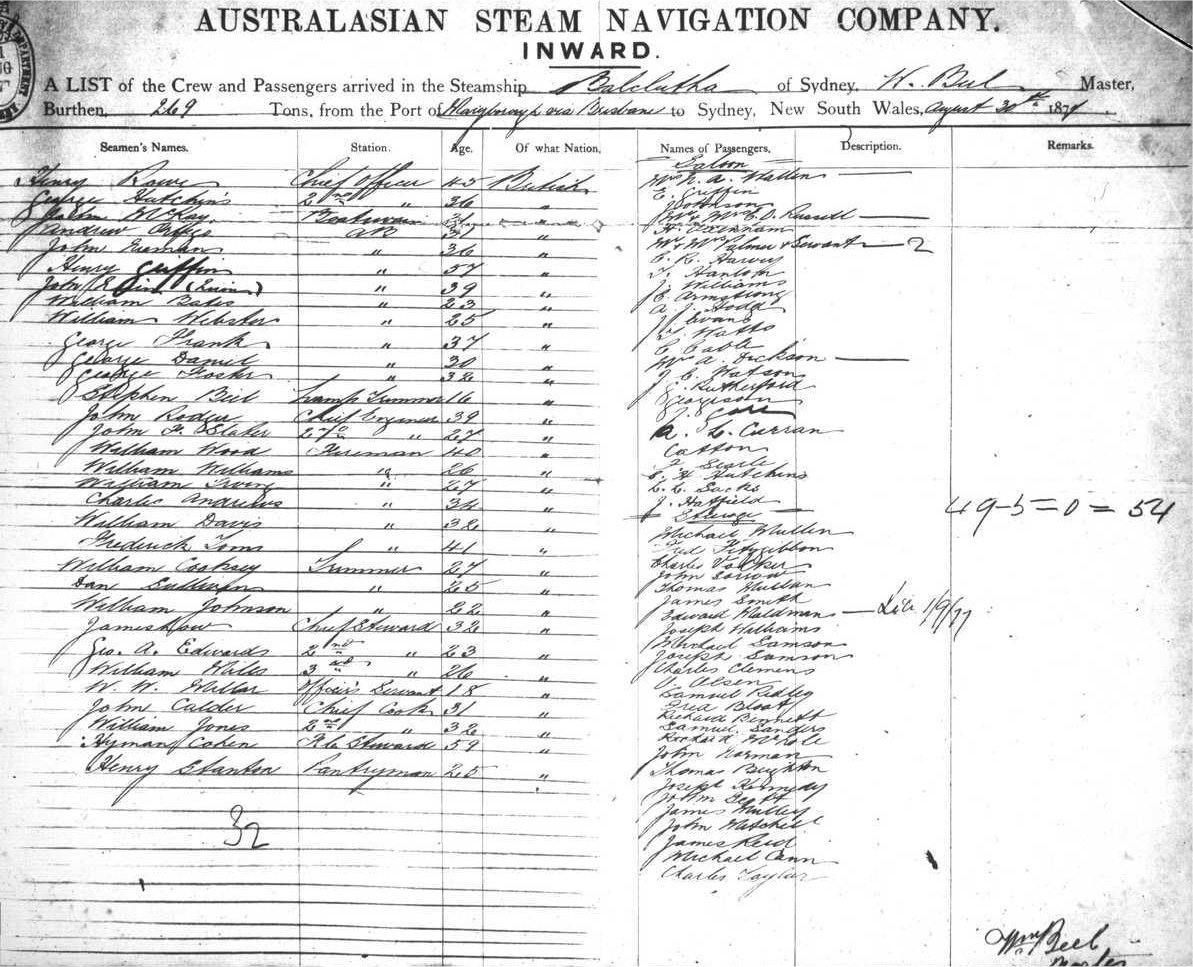 AUSTRALASIAN STEAM NAVIGATION COMPANY.
INWARD.
A LIST of the Crew and Passengers arrived in the Steamship Balclutha of Sydney, W. Beel Master,
Burthen, 269 Tons, from the Port of Maryborough via Brisbane to Sydney, New South Wales, August 30th 1877
Seamen's Names. Station. Age. Of what Nation.
Henry Rowe Chief Officer 45 British
George Hutchins 2nd " 36 "
John McKay Boatswain "
Andrew AB "
John " 36 "
Henry Griffin " 57 "
John " 39 "
William Bates " 23 "
William Webster " 25 "
George Frank " 37 "
George Daniel " 30 "
George Foster " 32 "
Stephen Beel Lamp Trimmer 16 "
John Rodger Chief Engineer 39 "
John F. Slater 2nd " 27 "
William Wood Fireman 40 "
William Williams " 26 "
William Irving " 27 "
Charles Andrews " 34 "
William Davis " 32 "
Frederick Toms " 41 "
William Cooksey Trimmer 27 "
Dan Sullivan " 25 "
William Johnson " 22 "
James Row Chief Steward 32 "
Geo. A. Edwards 2nd " 23 "
William Miles 3rd " 26 "
W. W. Millar Officer's Servant 18 "
John Calder Chief Cook 31 "
William Jones 2nd " 32 "
Hyman Cohen F.C. Steward 59 "
Henry Stanton Pantryman 25 "
32
Names of Passengers. Description. Remarks.
Saloon
Mrs N. A. Mallen
E. Griffin
Johnson
Mr & Mrs C. D. Russell
H.
Mr & Mrs Palmer & Servant 2
C. R. Harvey
T. Hanlon
J. Williams
C. Armstrong
A. J. Todd
J. Evans
T. Watts
C. Cable
Mrs A. Dickson
J. C. Watson
G. Rutherford
Georgeson
J. Gore
A. L. Curran
Catton
F. Searle
C. H. Hutchins
L. L. Sachs
J. Hatfield
Steerage
49-5=0=54
Michael Mullen
Fred Fitzgibbon
Charles
John
Thomas
James Smith
Edward Waldman 1/9/77
Joseph Williams
Michael Samson
Joseph Samson
Charles Clemens
O. Olsen
Samuel Ridley
Fred Bloat
Richard Bennett
Samuel Sanders
Richard
John Norman
Thomas Beighton
Joseph Kennedy
John Scott
James
John Mitchell
James Reid
Michael Cann
Charles Taylor
Wm Beel
Master